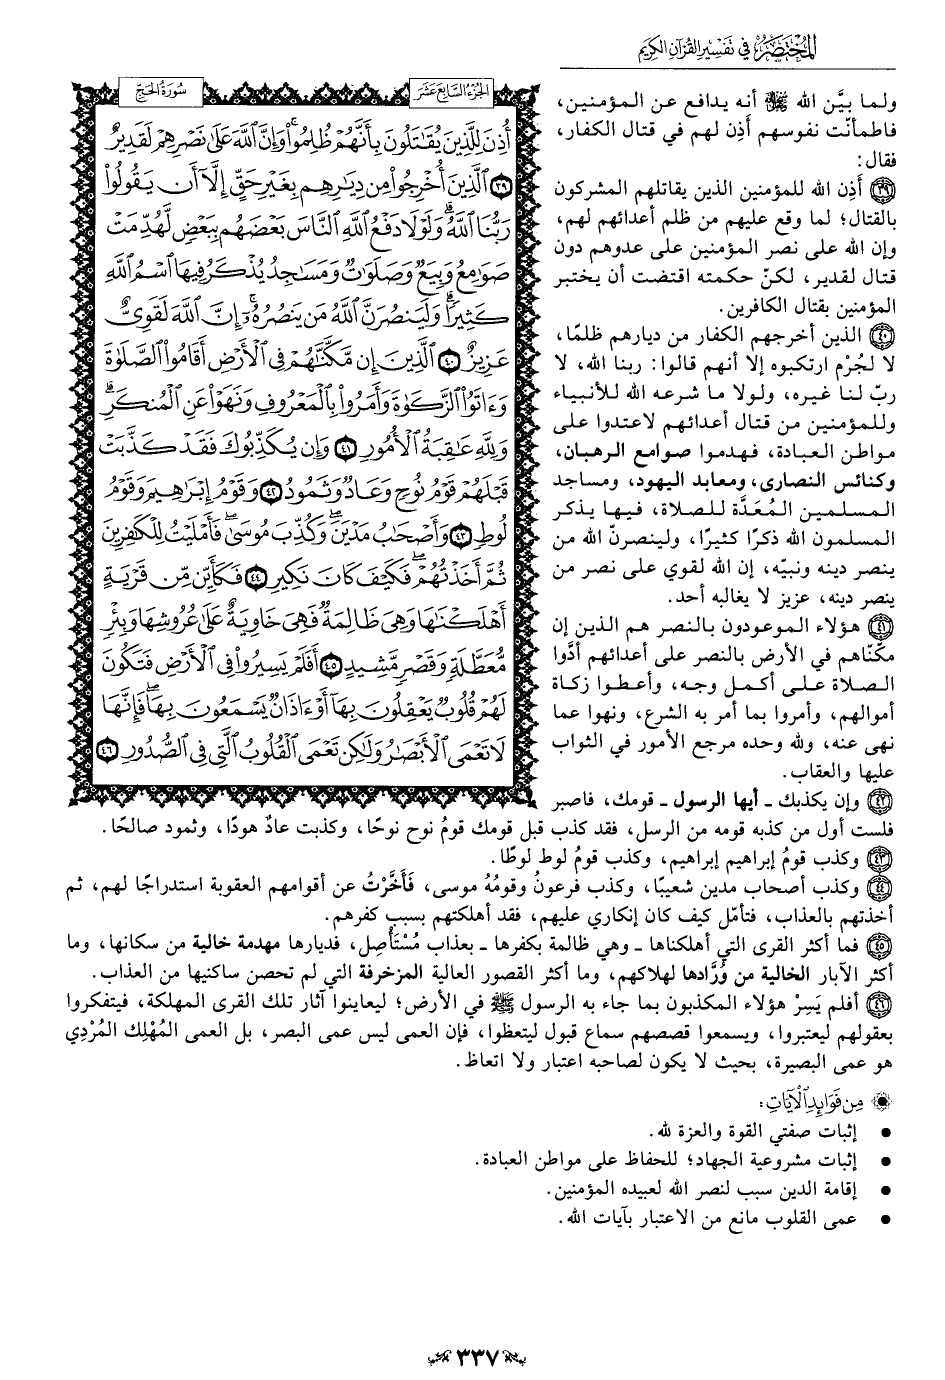 المُخْتَصَرُ في تفسير القرآن الكريم
ولما بيَّن الله ﷻ أنه يدافع عن المؤمنين،
فاطمأنّت نفوسهم أَذِن لهم في قتال الكفار،
فقال:
﴿٣٩﴾ أَذِن الله للمؤمنين الذين يقاتلهم المشركون
بالقتال؛ لما وقع عليهم من ظلم أعدائهم لهم،
وإن الله على نصر المؤمنين على عدوهم دون
قتال لقدير، لكنّ حكمته اقتضت أن يختبر
المؤمنين بقتال الكافرين.
﴿٤٠﴾ الذين أخرجهم الكفار من ديارهم ظلمًا،
لا لجُرْم ارتكبوه إلا أنهم قالوا: ربنا الله، لا
ربّ لنا غيره، ولولا ما شرعه الله للأنبياء
وللمؤمنين من قتال أعدائهم لاعتدوا على
مواطن العبادة، فهدموا صوامع الرهبان،
وكنائس النصارى، ومعابد اليهود، ومساجد
المسلمين المُعَدَّة للصلاة، فيها يذكر
المسلمون الله ذكرًا كثيرًا، ولينصرنّ الله من
ينصر دينه ونبيّه، إن الله لقوي على نصر من
ينصر دينه، عزيز لا يغالبه أحد.
﴿٤١﴾ هؤلاء الموعودون بالنصر هم الذين إن
مكّناهم في الأرض بالنصر على أعدائهم أدَّوا
الصلاة على أكمل وجه، وأعطوا زكاة
أموالهم، وأمروا بما أمر به الشرع، ونهوا عما
نهى عنه، ولله وحده مرجع الأمور في الثواب
عليها والعقاب.
﴿٤٢﴾ وإن يكذبك ـ أيها الرسول ـ قومك، فاصبر
فلست أول من كذبه قومه من الرسل، فقد كذب قبل قومك قومُ نوح نوحًا، وكذبت عادٌ هودًا، وثمود صالحًا.
﴿٤٣﴾ وكذب قومُ إبراهيم إبراهيم، وكذب قومُ لوط لوطًا.
﴿٤٤﴾ وكذب أصحاب مدين شعيبًا، وكذب فرعونُ وقومُهُ موسى، فَأَخَّرْتُ عن أقوامهم العقوبة استدراجًا لهم، ثم
أخذتهم بالعذاب، فتأمّل كيف كان إنكاري عليهم، فقد أهلكتهم بسبب كفرهم.
﴿٤٥﴾ فما أكثر القرى التي أهلكناها ـ وهي ظالمة بكفرها ـ بعذاب مُسْتَأْصِل، فديارها مهدمة خالية من سكانها، وما
أكثر الآبار الخالية من وُرَّادها لهلاكهم، وما أكثر القصور العالية المزخرفة التي لم تحصن ساكنيها من العذاب.
﴿٤٦﴾ أفلم يَسِرْ هؤلاء المكذبون بما جاء به الرسول ﷺ في الأرض؛ ليعاينوا آثار تلك القرى المهلكة، فيتفكروا
بعقولهم ليعتبروا، ويسمعوا قصصهم سماع قبول ليتعظوا، فإن العمى ليس عمى البصر، بل العمى المُهْلِك المُرْدِي
هو عمى البصيرة، بحيث لا يكون لصاحبه اعتبار ولا اتعاظ.
مِن فَوَائِدِ الآيَاتِ:
• إثبات صفتي القوة والعزة لله.
• إثبات مشروعية الجهاد؛ للحفاظ على مواطن العبادة.
• إقامة الدين سبب لنصر الله لعبيده المؤمنين.
• عمى القلوب مانع من الاعتبار بآيات الله.
الجزء السابع عشر
سورة الحج
أُذِنَ لِلَّذِينَ يُقَٰتَلُونَ بِأَنَّهُمْ ظُلِمُوا۟ ۚ وَإِنَّ ٱللَّهَ عَلَىٰ نَصْرِهِمْ لَقَدِيرٌ
﴿٣٩﴾ ٱلَّذِينَ أُخْرِجُوا۟ مِن دِيَٰرِهِم بِغَيْرِ حَقٍّ إِلَّآ أَن يَقُولُوا۟
رَبُّنَا ٱللَّهُ ۗ وَلَوْلَا دَفْعُ ٱللَّهِ ٱلنَّاسَ بَعْضَهُم بِبَعْضٍ لَّهُدِّمَتْ
صَوَٰمِعُ وَبِيَعٌ وَصَلَوَٰتٌ وَمَسَٰجِدُ يُذْكَرُ فِيهَا ٱسْمُ ٱللَّهِ
كَثِيرًا ۗ وَلَيَنصُرَنَّ ٱللَّهُ مَن يَنصُرُهُۥٓ ۗ إِنَّ ٱللَّهَ لَقَوِىٌّ
عَزِيزٌ ﴿٤٠﴾ ٱلَّذِينَ إِن مَّكَّنَّٰهُمْ فِى ٱلْأَرْضِ أَقَامُوا۟ ٱلصَّلَوٰةَ
وَءَاتَوُا۟ ٱلزَّكَوٰةَ وَأَمَرُوا۟ بِٱلْمَعْرُوفِ وَنَهَوْا۟ عَنِ ٱلْمُنكَرِ ۗ
وَلِلَّهِ عَٰقِبَةُ ٱلْأُمُورِ ﴿٤١﴾ وَإِن يُكَذِّبُوكَ فَقَدْ كَذَّبَتْ
قَبْلَهُمْ قَوْمُ نُوحٍ وَعَادٌ وَثَمُودُ ﴿٤٢﴾ وَقَوْمُ إِبْرَٰهِيمَ وَقَوْمُ
لُوطٍ ﴿٤٣﴾ وَأَصْحَٰبُ مَدْيَنَ ۖ وَكُذِّبَ مُوسَىٰ فَأَمْلَيْتُ لِلْكَٰفِرِينَ
ثُمَّ أَخَذْتُهُمْ ۖ فَكَيْفَ كَانَ نَكِيرِ ﴿٤٤﴾ فَكَأَيِّن مِّن قَرْيَةٍ
أَهْلَكْنَٰهَا وَهِىَ ظَالِمَةٌ فَهِىَ خَاوِيَةٌ عَلَىٰ عُرُوشِهَا وَبِئْرٍ
مُّعَطَّلَةٍ وَقَصْرٍ مَّشِيدٍ ﴿٤٥﴾ أَفَلَمْ يَسِيرُوا۟ فِى ٱلْأَرْضِ فَتَكُونَ
لَهُمْ قُلُوبٌ يَعْقِلُونَ بِهَآ أَوْ ءَاذَانٌ يَسْمَعُونَ بِهَا ۖ فَإِنَّهَا
لَا تَعْمَى ٱلْأَبْصَٰرُ وَلَٰكِن تَعْمَى ٱلْقُلُوبُ ٱلَّتِى فِى ٱلصُّدُورِ ﴿٤٦﴾
٣٣٧